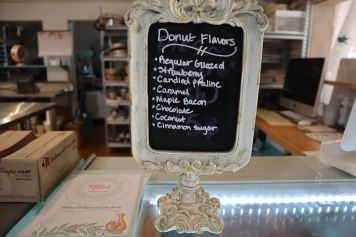 Donut Flavors
• Regular Glazed
• Strawberry
• Candied Praline
• Caramel
• Maple Bacon
• Chocolate
• Coconut
• Cinnamon Sugar